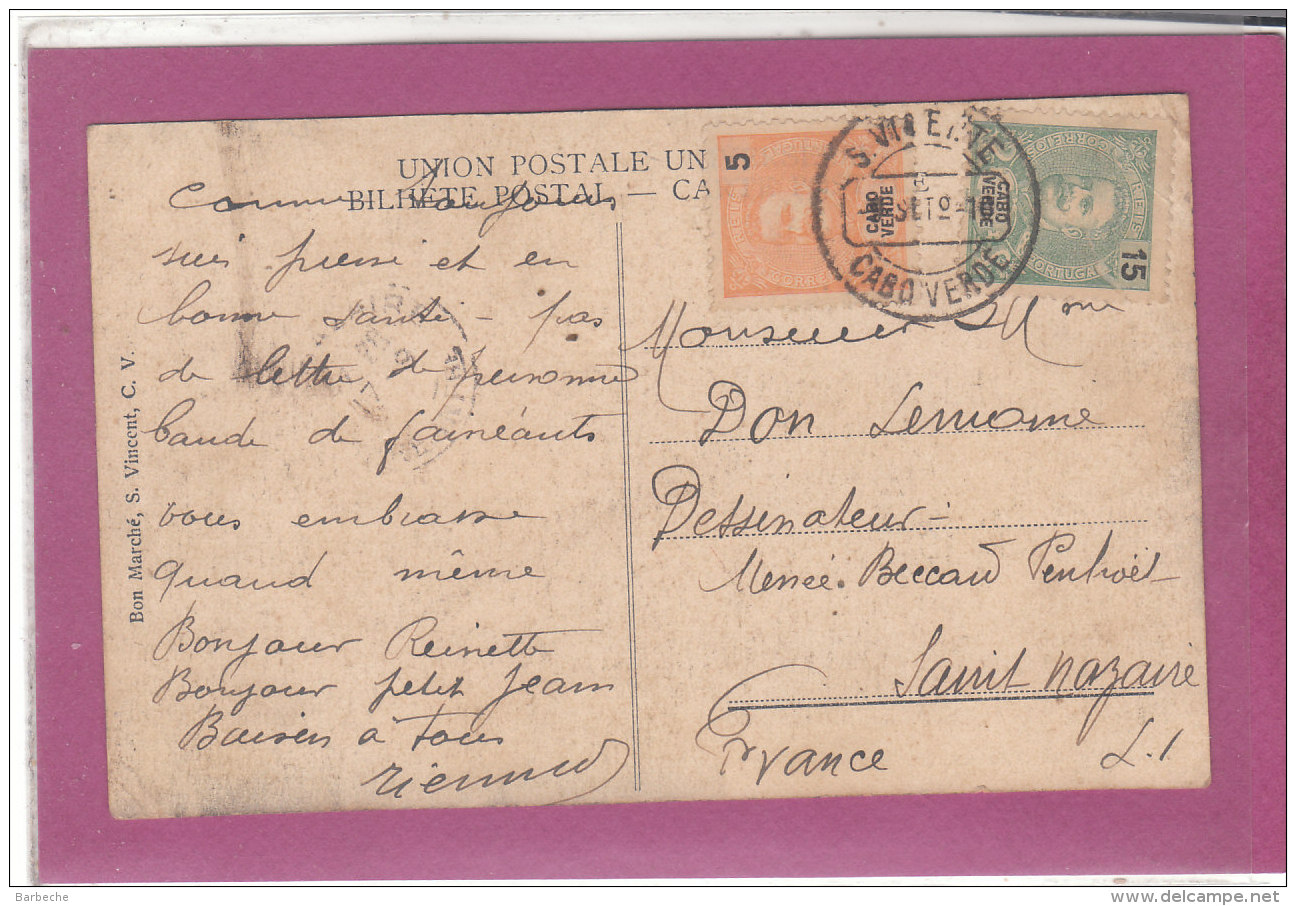 UNION POSTALE UN
BILHETE POSTAL — CA
5
CABO
VERDE
S. VICENTE
SETº
CABO VERDE
CABO
VERDE
CORREIOS
REIS
PORTUGAL
15
Comme toujours
suis et en
bonne santé - pas
de lettre de personne
bande de fainéants
vous embrasse
quand même
Bonjour Reinette
Bonjour petit Jean
Baisers à tous
Monsieur & Mme
Don
Dessinateur -
Penhoët
Saint Nazaire
France L. I
Bon Marché, S. Vincent, C. V.
Barbeche
delcampe.net